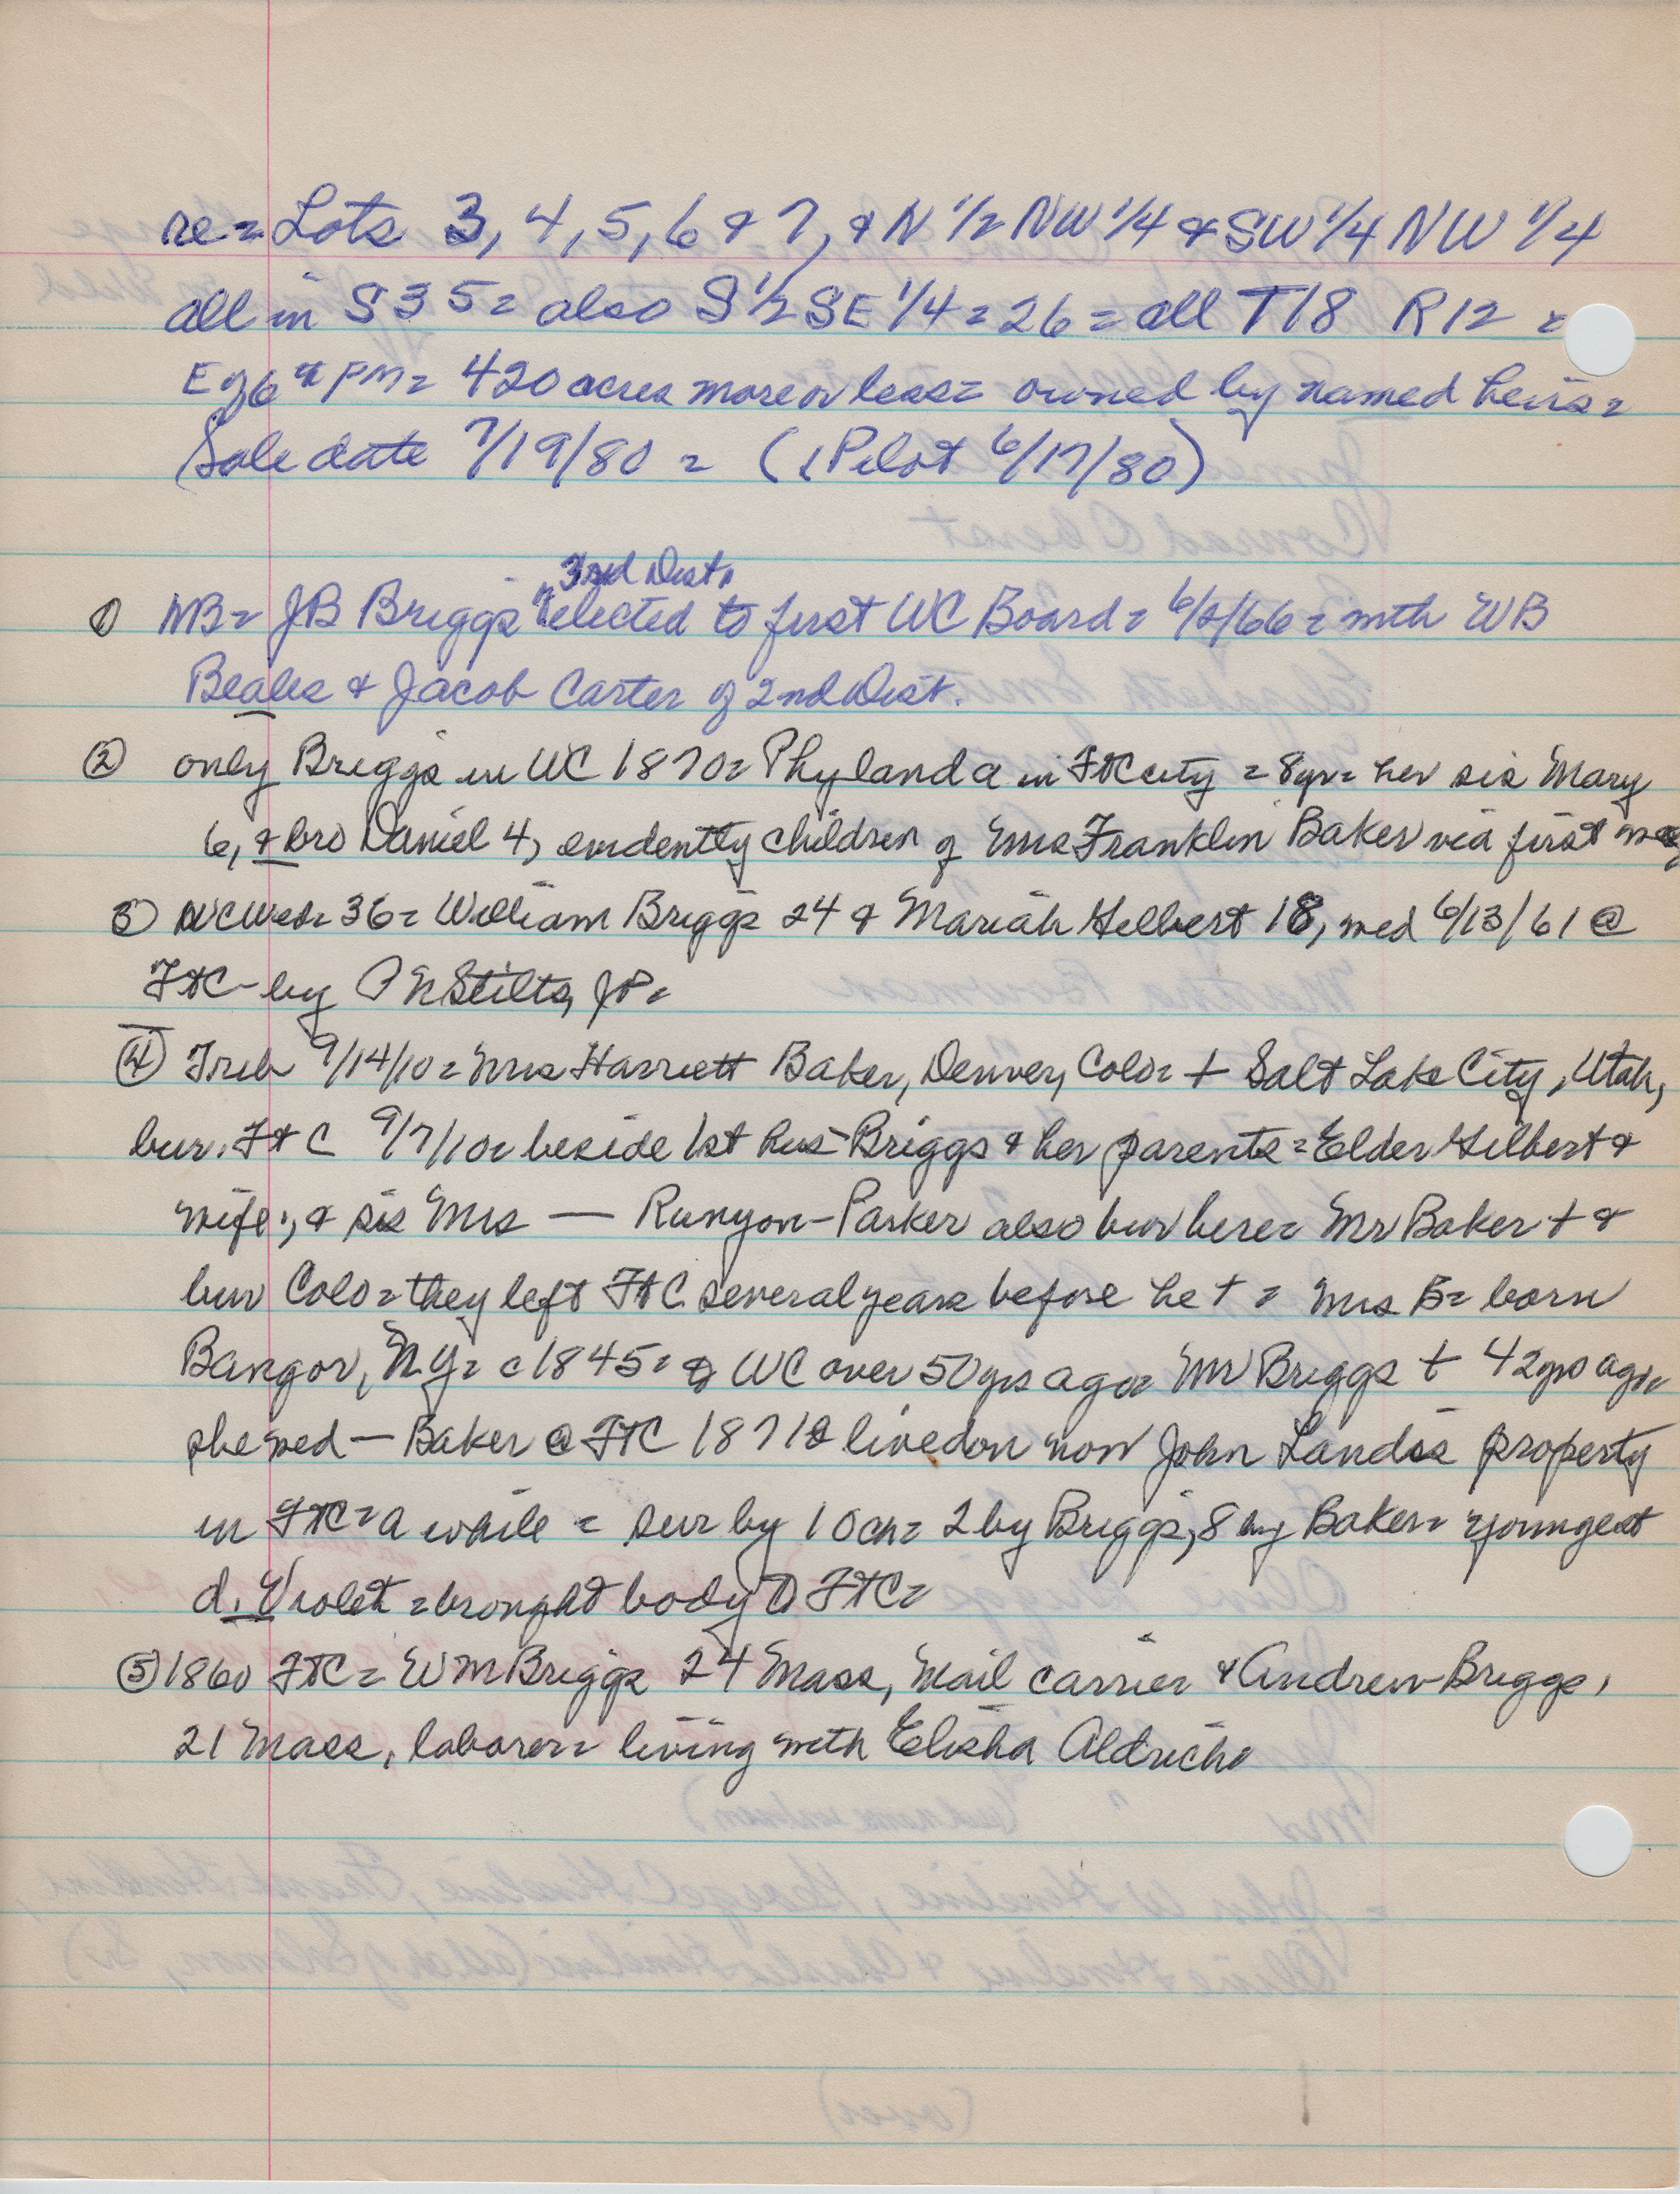 re = Lots 3, 4, 5, 6 & 7, & N 1/2 NW 1/4 & SW 1/4 NW 1/4
all in S 35 = also S 1/2 SE 1/4 = 26 = all T18 R12 =
E of 6th PM = 420 acres more or less = owned by named heirs =
Sale date 7/19/80 = (Pilot 6/17/80)
3rd Dist.
① MB = JB Briggs " elected to first WC Board = 6/2/66 = with WB
Beales & Jacob Carter of 2nd Dist.
② only Briggs in WC 1870 = Phylanda in FtC city = 8yr = her sis Mary
6, & bro Daniel 4, evidently children of Mrs Franklin Baker via first
3) WC Wed = 36 = William Briggs 24 & Mariah Hilbert 18, wed 6/13/61 @
FtC - by Stilts, JP =
④ Trib 9/14/10 = Mrs Harriett Baker, Denver, Colo = + Salt Lake City, Utah,
bur. FtC 9/7/10 = beside 1st hus - Briggs & her parents = Elder Hilbert &
wife;, & sis Mrs — Runyon-Parker also bur here = Mr Baker + &
bur Colo = they left FtC several years before he + = Mrs B = born
Bangor, N.Y. = c1845 = WC over 50 yrs ago = Mr Briggs + 42 yrs ago,
she wed — Baker @ FtC 1871 & lived on now John Landis property
in FtC = a while = sur by 10 ch = 2 by Briggs, 8 by Baker = youngest
d. Violet = brought body to FtC =
⑤ 1860 FtC = Wm Briggs 24 Mass, Mail carrier & Andrew Briggs,
21 Mass, laborer = living with Elisha Aldrich